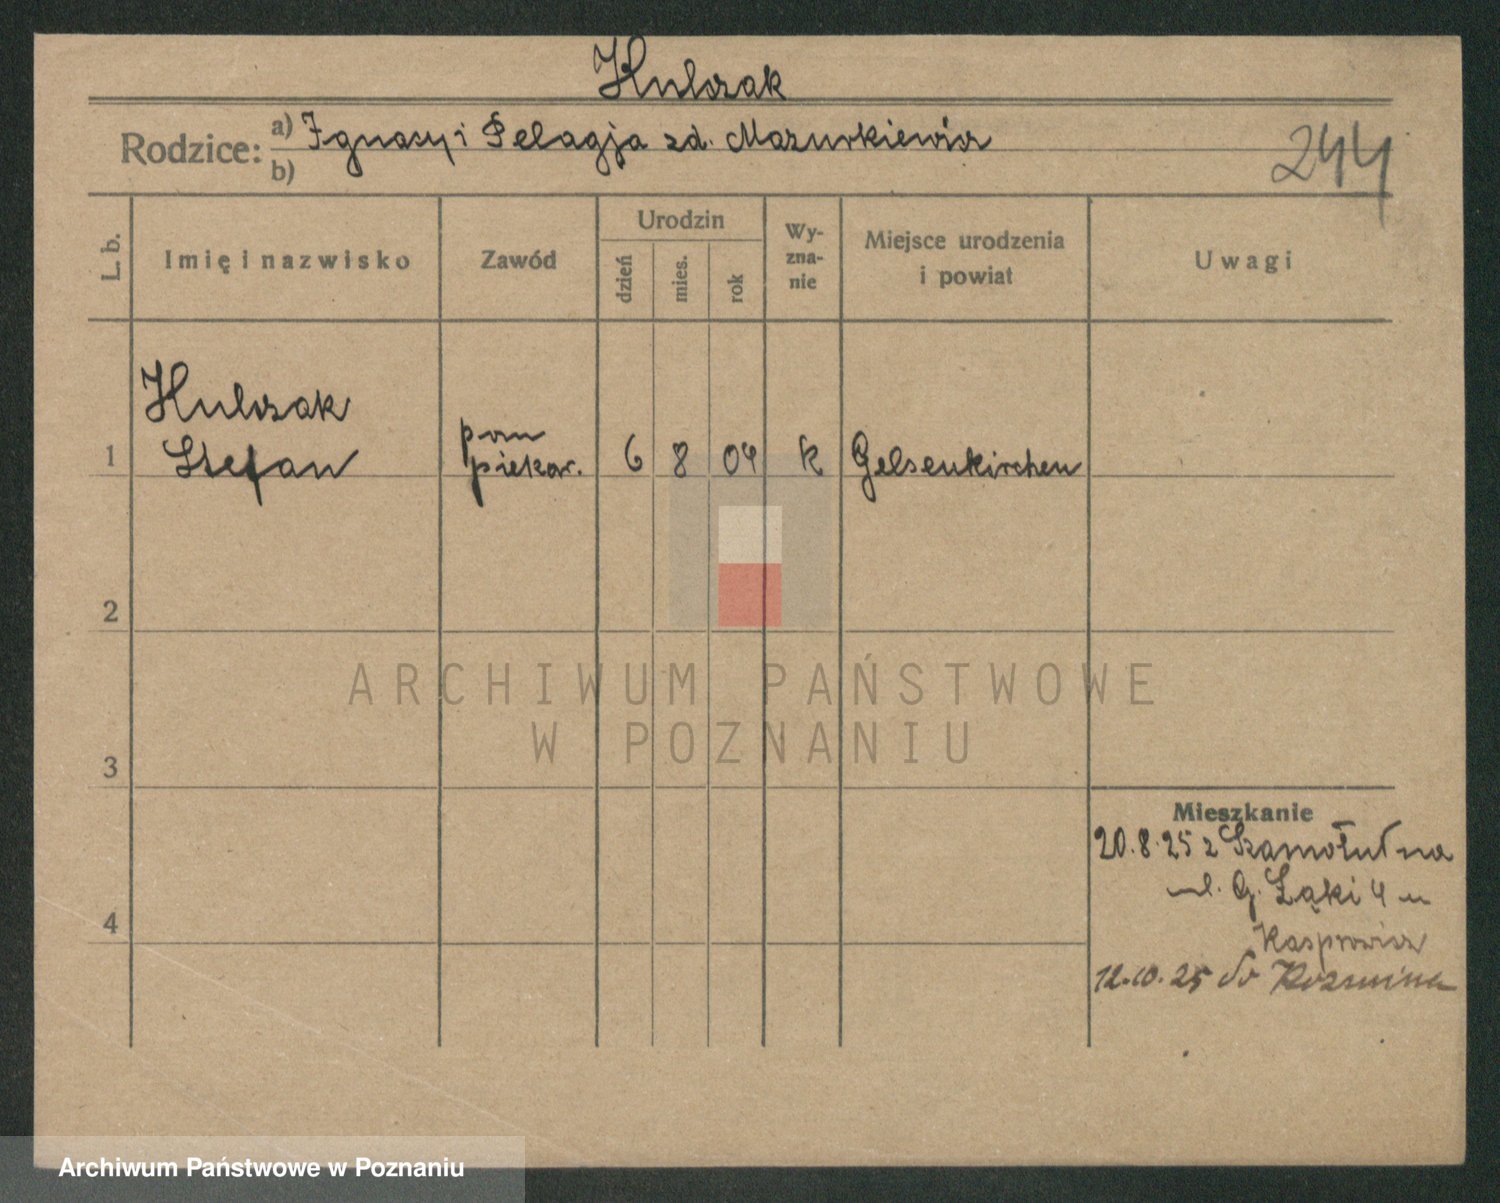 Hulczak
Rodzice: a) Ignacy i Pelagja zd. Mazurkiewicz
b)
244
L. b.
Imię i nazwisko
Zawód
Urodzin
dzień
mies.
rok
Wy-
zna-
nie
Miejsce urodzenia
i powiat
Uwagi
Hulczak
1 Stefan
pom
piekar.
6 8 04 k Gelsenkirchen
2
3
4
Mieszkanie
20.8.25 z Szamotuł na
ul. G. Łąki 4 u
Kasprowicz
12.10.25 do Koźmina
ARCHIWUM PAŃSTWOWE
W POZNANIU
Archiwum Państwowe w Poznaniu